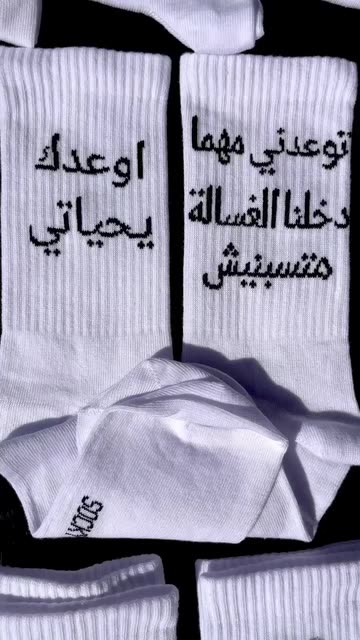 توعدني مهما
دخلنا الغسالة
متسبنيش
اوعدك
يحياتي
SOCKY